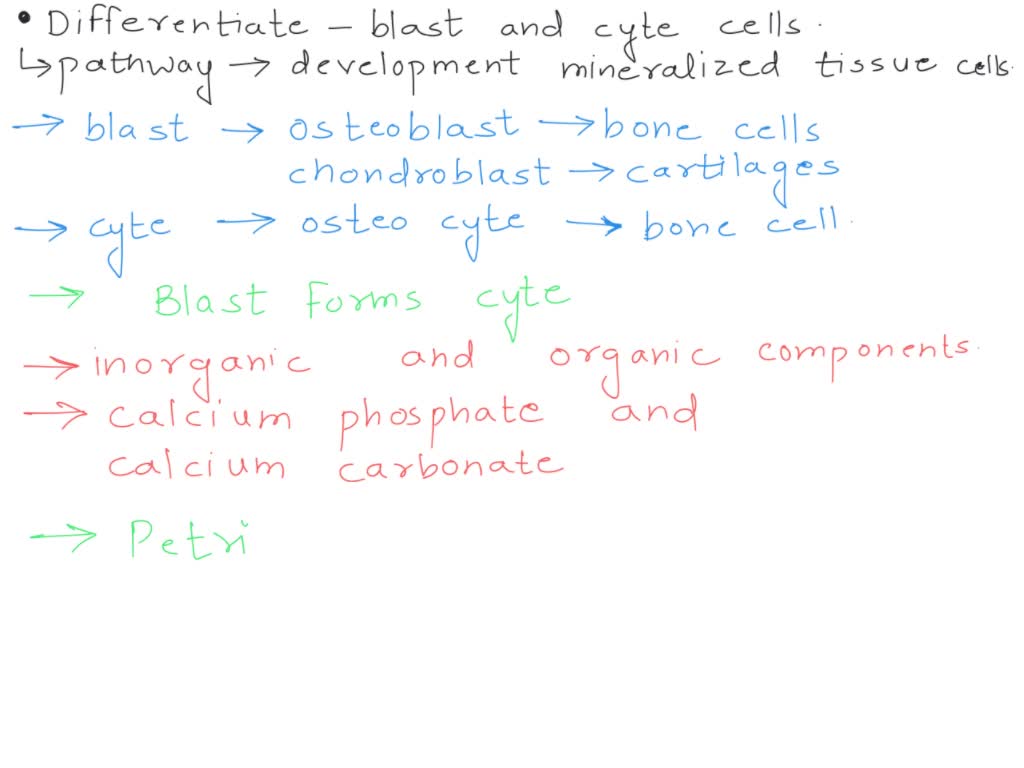 • Differentiate – blast and cyte cells.
↳ pathway → development mineralized tissue cells.
→ blast → osteoblast → bone cells
chondroblast → cartilages
→ cyte → osteo cyte → bone cell.
→ Blast Forms cyte
→ inorganic and organic components.
→ calcium phosphate and
calcium carbonate
→ Petri